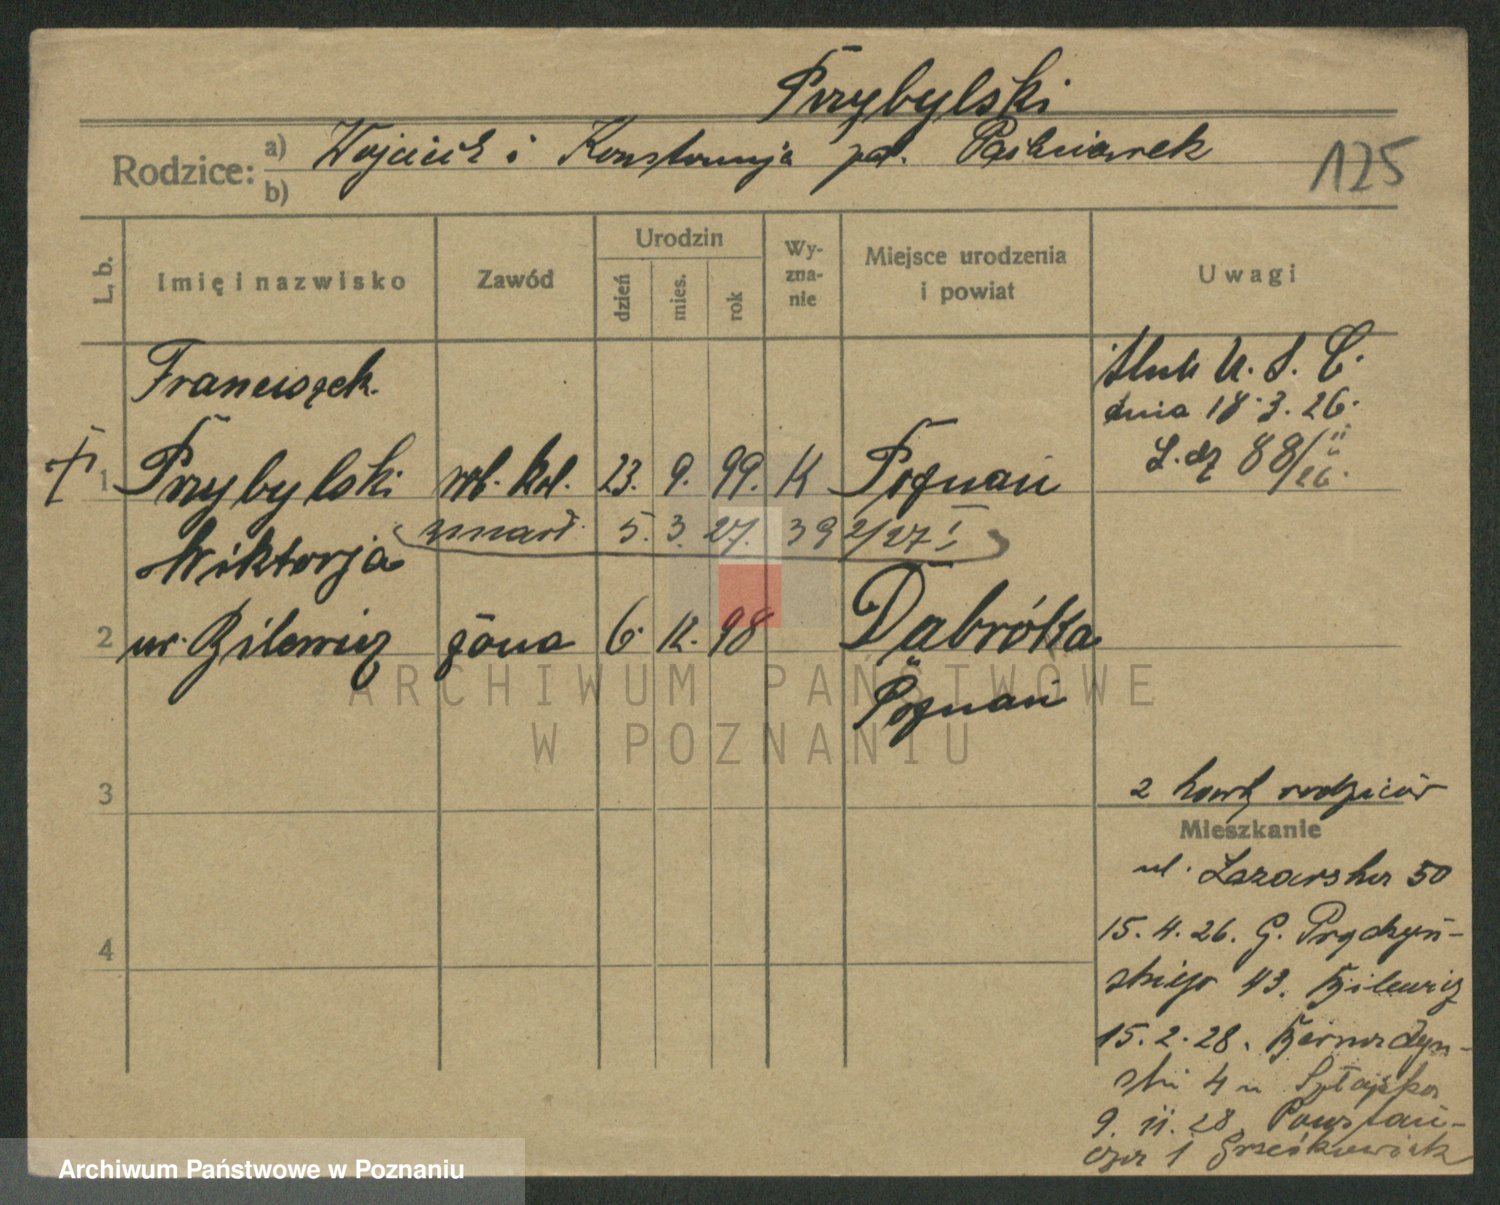 Przybylski
Rodzice: a) Wojciech i Konstancja
b)
125
L. b. Imię i nazwisko Zawód Urodzin dzień mies. rok Wyznanie Miejsce urodzenia i powiat Uwagi
Franciszek
1 Przybylski rob. kol. 23. 9. 99. K Poznań
ślub U. S. C.
dnia 18.3.26.
L. dz 88/II 26.
zmarł 5. 3. 27. 392/27 I
Wiktorja
2 ur. Bilewicz żona 6. 12. 98 Dąbrówka
Poznań
3
4
2 karty rodziców
Mieszkanie
ul. Łazarska 50
15. 4. 26. G. Prądzyń-
skiego 43. Bilewicz
15. 2. 28. Bernardyn-
ski 4 u
9. 11. 28. Powstań-
ARCHIWUM PAŃSTWOWE
W POZNANIU
Archiwum Państwowe w Poznaniu